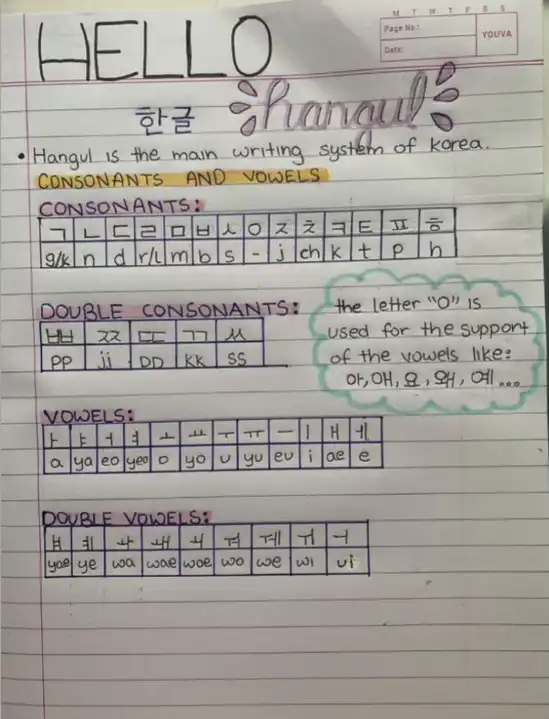 M T W T F S S
HELLO
Page No.:
YOUVA
Date:
한글 hangul
• Hangul is the main writing system of korea.
CONSONANTS AND VOWELS
CONSONANTS:
ㄱ ㄴ ㄷ ㄹ ㅁ ㅂ ㅅ ㅇ ㅈ ㅊ ㅋ ㅌ ㅍ ㅎ
g/k n d r/l m b s - j ch k t p h
DOUBLE CONSONANTS:
ㅃ ㅉ ㄸ ㄲ ㅆ
pp jj DD KK SS
the letter "O" is
used for the support
of the vowels like:
아, 애, 요, 왜, 예...
VOWELS:
ㅏ ㅑ ㅓ ㅕ ㅗ ㅛ ㅜ ㅠ ㅡ ㅣ ㅐ ㅔ
a ya eo yeo o yo u yu eu i ae e
DOUBLE VOWELS:
ㅒ ㅖ ㅘ ㅙ ㅚ ㅝ ㅞ ㅟ ㅢ
yae ye wa wae woe wo we wi ui